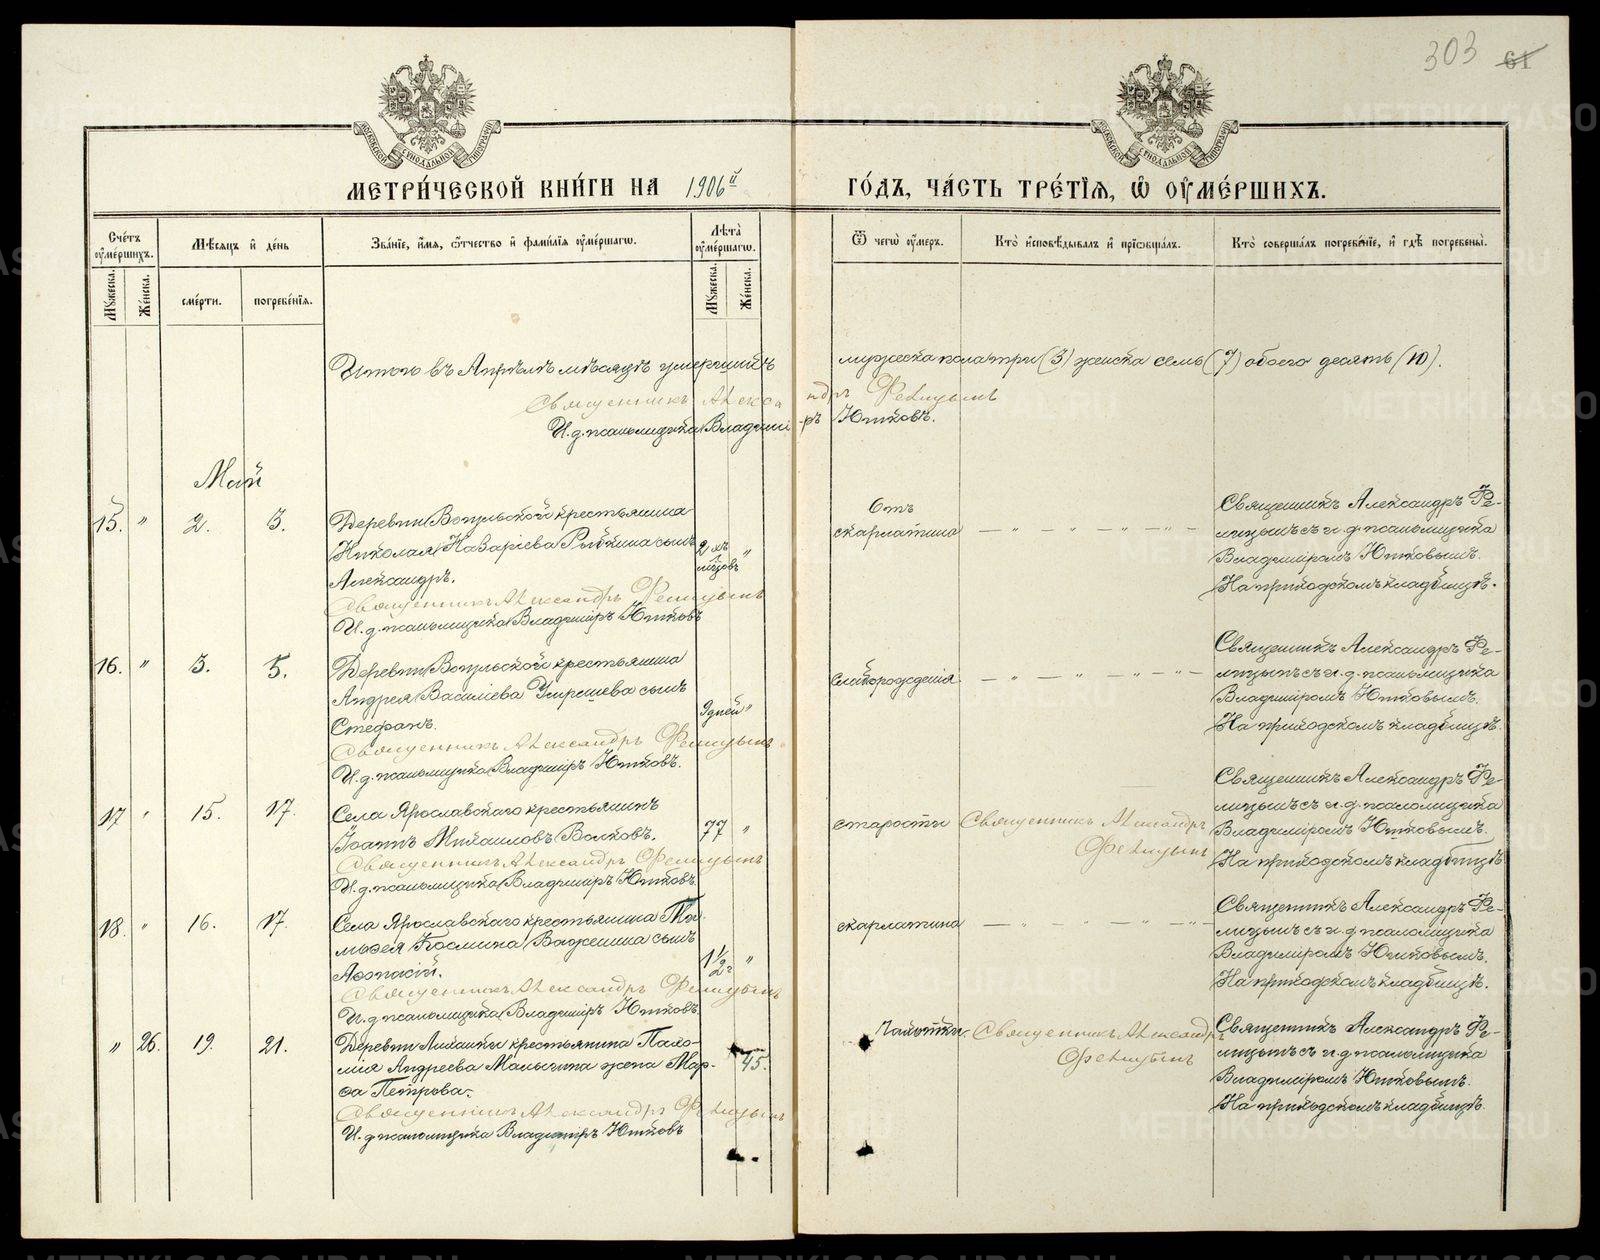 303 61
МЕТРИ́ЧЕСКОЙ КНИ́ГИ НА 1906й ГО́ДЪ, ЧА́СТЬ ТРЕ́ТІѦ, Ѽ ОУ҆МЕ́РШИХЪ.
Сче́тъ оу҆ме́ршихъ.
Мѣ́сяцъ и҆ де́нь
Зва́ніе, и҆́мя, ѻ҆́тчество и҆ фами́лія оу҆ме́ршагѡ.
Лѣ́та оу҆ме́ршагѡ.
Ѿ чегѡ̀ оу҆́меръ.
Кто̀ и҆сповѣ́дывалъ и҆ прїѻбща́лъ.
Кто̀ соверша́лъ погребе́нїе, и҆ гдѣ̀ погребены̀.
Мꙋ́жеска. Же́нска.
сме́рти. погребе́нїя.
Мꙋ́жеска. Же́нска.
Итого въ Апрѣлѣ мѣсяцѣ умершихъ мужеска пола три (3) женска семь (7) обоего десять (10).
Священникъ Александръ Фелицынъ
И.д.псаломщика Владиміръ Ютковъ.
Май
15. " 2. 3.
Деревни Вогульской крестьянина
Николая Назаріева Рыбкина сынъ
Александръ.
2 хъ мѣсяцовъ "
Священникъ Александръ Фелицынъ
И.д.псаломщика Владиміръ Ютковъ
Отъ
скарлатина — " — " — " —
Священникъ Александръ Фе-
лицынъ съ и.д.псаломщика
Владиміромъ Ютковымъ.
На приходскомъ кладбищѣ.
16. " 3. 5.
Деревни Вогульской крестьянина
Андрея Василіева сынъ
Стефанъ.
9 дней "
Священникъ Александръ Фелицынъ
И.д.псаломщика Владиміръ Ютковъ.
Слаборожденія — " — " — " —
Священникъ Александръ Фе-
лицынъ съ и.д.псаломщика
Владиміромъ Ютковымъ.
На приходскомъ кладбищѣ.
17 " 15. 17.
Села Ярославскаго крестьянинъ
Іоаннъ Михаиловъ Волковъ.
77 "
Священникъ Александръ Фелицынъ
И.д.псаломщика Владиміръ Ютковъ.
старости
Священникъ Александръ
Фелицынъ
Священникъ Александръ Фе-
лицынъ съ и.д.псаломщика
Владиміромъ Ютковымъ.
На приходскомъ кладбищѣ
18. " 16. 17.
Села Ярославскаго крестьянина Мат-
ѳея Космина сынъ
Аѳонасій.
1 1/2 г "
Священникъ Александръ Фелицынъ
И.д.псаломщика Владиміръ Ютковъ.
скарлатина — " — " — " —
Священникъ Александръ Фе-
лицынъ съ и.д.псаломщика
Владиміромъ Ютковымъ.
На приходскомъ кладбищѣ.
" 26. 19. 21.
Деревни крестьянина Пахо-
мія Андреева Малыгина жена Мар-
ѳа Петрова.
" 45.
Священникъ Александръ Фелицынъ
И.д.псаломщика Владиміръ Ютковъ
Чахотки
Священникъ Александръ
Фелицынъ
Священникъ Александръ Фе-
лицынъ съ и.д.псаломщика
Владиміромъ Ютковымъ.
На приходскомъ кладбищѣ.
METRIKI.GASO-URAL.RU